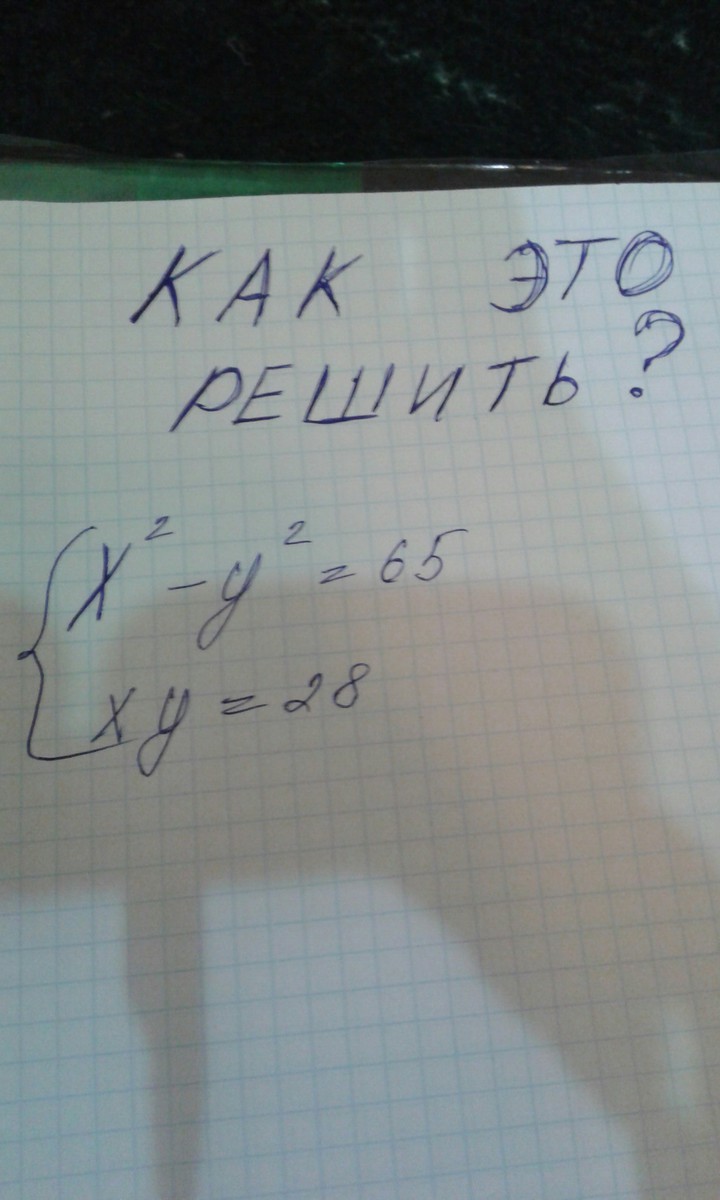 КАК ЭТО
РЕШИТЬ?
x² - y² = 65
xy = 28